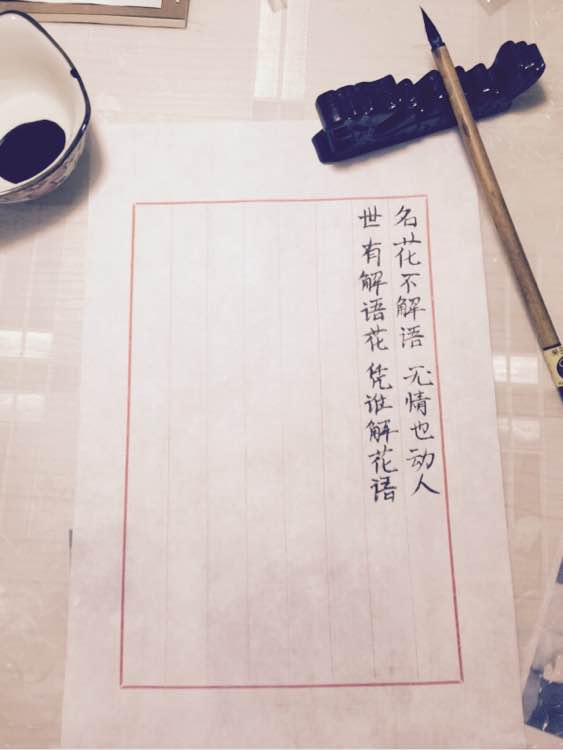 名花不解语 无情也动人
世有解语花 凭谁解花语